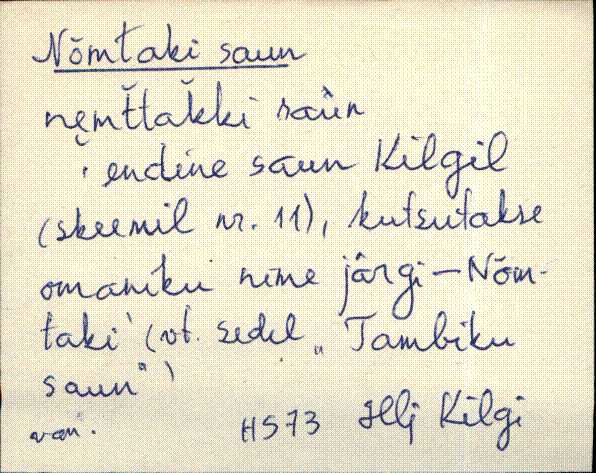 Nõmtaki saun
nęmt̆tak̆ki saùn
endine saun Kilgil
(skeemil nr. 11), kutsutakse
omaniku nime järgi – Nõm-
taki (vt. sedel „Tambiku
saun")
HS73 Hlj Kilgi